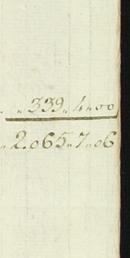 „ 339„ 4„ 00
„ 2.065„ 7„ 06